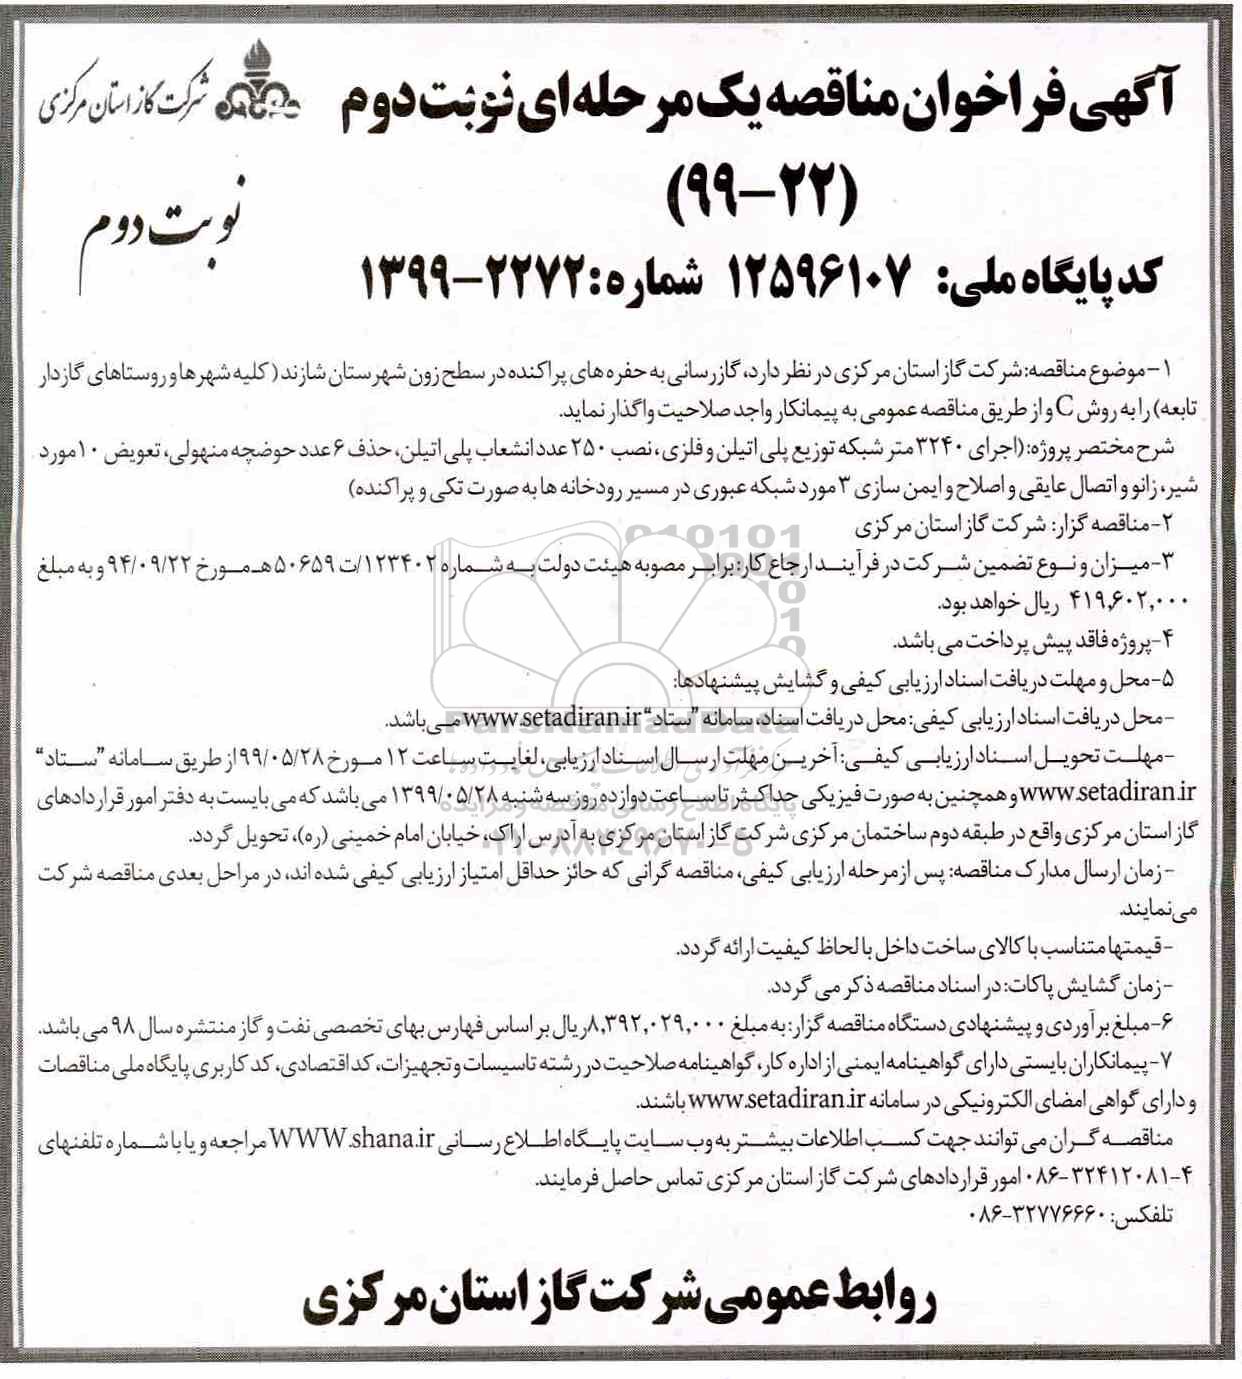 شرکت گاز استان مرکزی
آگهی فراخوان مناقصه یک مرحله ای نوبت دوم
(۹۹-۲۲)
نوبت دوم
کد پایگاه ملی: ۱۲۵۹۶۱۰۷ شماره: ۲۲۷۲-۱۳۹۹
۱-موضوع مناقصه: شرکت گاز استان مرکزی در نظر دارد، گازرسانی به حفره های پراکنده در سطح زون شهرستان شازند (کلیه شهرها و روستاهای گازدار
تابعه) را به روش C و از طریق مناقصه عمومی به پیمانکار واجد صلاحیت واگذار نماید.
شرح مختصر پروژه: (اجرای ۳۲۴۰ متر شبکه توزیع پلی اتیلن و فلزی، نصب ۲۵۰ عدد انشعاب پلی اتیلن، حذف ۶ عدد حوضچه منهولی، تعویض ۱۰ مورد
شیر، زانو و اتصال عایقی و اصلاح و ایمن سازی ۳ مورد شبکه عبوری در مسیر رودخانه ها به صورت تکی و پراکنده)
۲-مناقصه گزار: شرکت گاز استان مرکزی
۳-میزان و نوع تضمین شرکت در فرآیند ارجاع کار: برابر مصوبه هیئت دولت به شماره ۱۲۳۴۰۲/ت ۵۰۶۵۹ هـ مورخ ۹۴/۰۹/۲۲ و به مبلغ
۴۱۹,۶۰۲,۰۰۰ ریال خواهد بود.
۴-پروژه فاقد پیش پرداخت می باشد.
۵-محل و مهلت دریافت اسناد ارزیابی کیفی و گشایش پیشنهادها:
-محل دریافت اسناد ارزیابی کیفی: محل دریافت اسناد، سامانه "ستاد" www.setadiran.ir می باشد.
ParsNamadData
-مهلت تحویل اسناد ارزیابی کیفی: آخرین مهلت ارسال اسناد ارزیابی، لغایت ساعت ۱۲ مورخ ۹۹/۰۵/۲۸ از طریق سامانه "ستاد"
www.setadiran.ir و همچنین به صورت فیزیکی حداکثر تا ساعت دوازده روز سه شنبه ۱۳۹۹/۰۵/۲۸ می باشد که می بایست به دفتر امور قراردادهای
پایگاه اطلاع رسانی مناقصه و مزایده
گاز استان مرکزی واقع در طبقه دوم ساختمان مرکزی شرکت گاز استان مرکزی به آدرس اراک، خیابان امام خمینی (ره)، تحویل گردد.
۰۲۱-۸۸۳۴۹۶۷۰-۵
-زمان ارسال مدارک مناقصه: پس از مرحله ارزیابی کیفی، مناقصه گرانی که حائز حداقل امتیاز ارزیابی کیفی شده اند، در مراحل بعدی مناقصه شرکت
می نمایند.
-قیمتها متناسب با کالای ساخت داخل با لحاظ کیفیت ارائه گردد.
-زمان گشایش پاکات: در اسناد مناقصه ذکر می گردد.
۶-مبلغ برآوردی و پیشنهادی دستگاه مناقصه گزار: به مبلغ ۸,۳۹۲,۰۲۹,۰۰۰ ریال بر اساس فهارس بهای تخصصی نفت و گاز منتشره سال ۹۸ می باشد.
۷-پیمانکاران بایستی دارای گواهینامه ایمنی از اداره کار، گواهینامه صلاحیت در رشته تاسیسات و تجهیزات، کد اقتصادی، کد کاربری پایگاه ملی مناقصات
و دارای گواهی امضای الکترونیکی در سامانه www.setadiran.ir باشند.
مناقصه گران می توانند جهت کسب اطلاعات بیشتر به وب سایت پایگاه اطلاع رسانی WWW.shana.ir مراجعه و یا با شماره تلفنهای
۰۸۶-۳۲۴۱۲۰۸۱-۴ امور قراردادهای شرکت گاز استان مرکزی تماس حاصل فرمایند.
تلفکس: ۰۸۶-۳۲۷۷۶۶۶۰
روابط عمومی شرکت گاز استان مرکزی